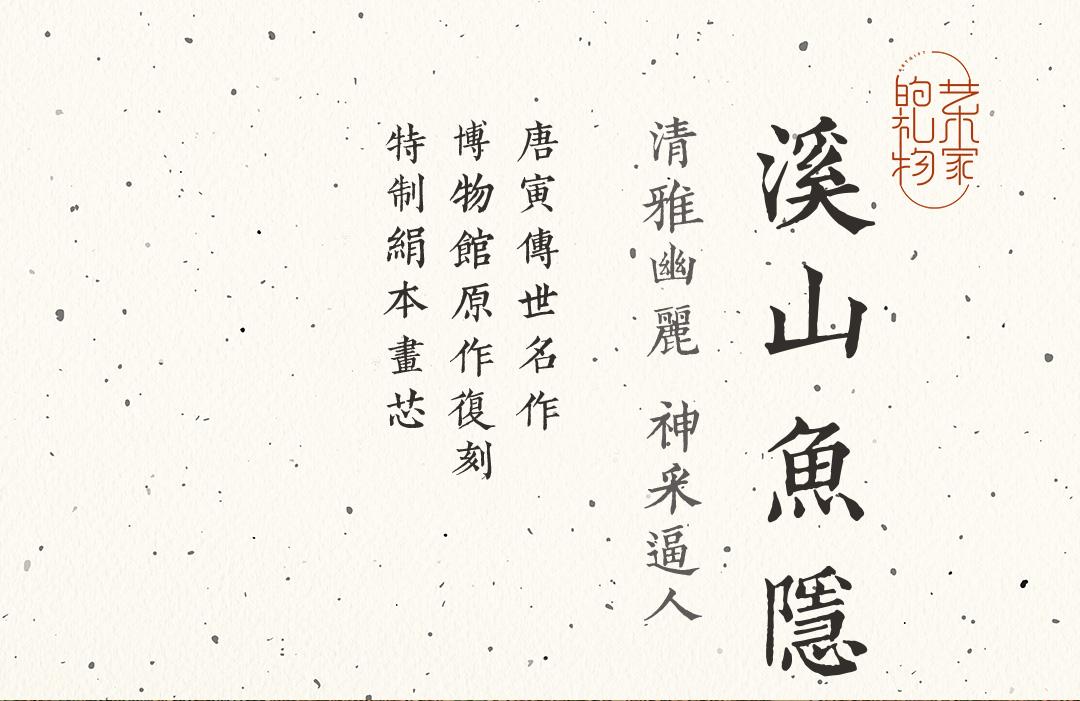 艺术家
的礼物
溪山魚隱
清雅幽麗 神采逼人
唐寅傳世名作
博物館原作復刻
特制絹本畫芯